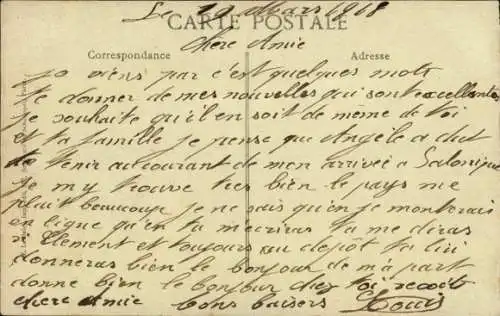 Le 19 Mars 1918
CARTE POSTALE
Chere Amie
Correspondance Adresse
je viens par c'est quelques mots
te donner de mes nouvelles qui sont excellentes
je souhaite qu'il en soit de même de toi
et ta famille je pense que Angèle a dut
te tenir au courant de mon arrivée a Salonique
je my trouve tres bien le pays me
plait beaucoup je ne sais qu'en je monterais
en ligne qu'en tu mecriras tu me diras
si Clement est toujours au depôt tu lui
donneras bien le bonjour de ma part
donne bien le bonjour chez toi recois
chere Amie bons baisers Louis